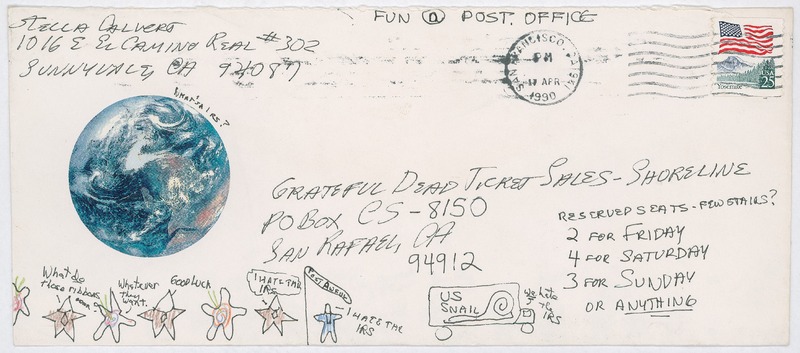 Stella Calvert
1016 E El Camino Real #302
Sunnyvale, CA 94087
FUN @ POST. OFFICE
SAN FRANCISCO, CA 941
PM
17 APR
1990
USA
25
Yosemite
What's a IRS?
GRATEFUL DEAD TICKET SALES - SHORELINE
PO BOX CS-8150
SAN RAFAEL, CA
94912
RESERVED SEATS - FEW STAIRS?
2 FOR FRIDAY
4 FOR SATURDAY
3 FOR SUNDAY
OR ANYTHING
What do
those ribbons
mean
Whatever
they
want.
GOOD LUCK
I HATE THE
IRS
POST OFFICE
I HATE THE
IRS
US
SNAIL
We hate
the
IRS